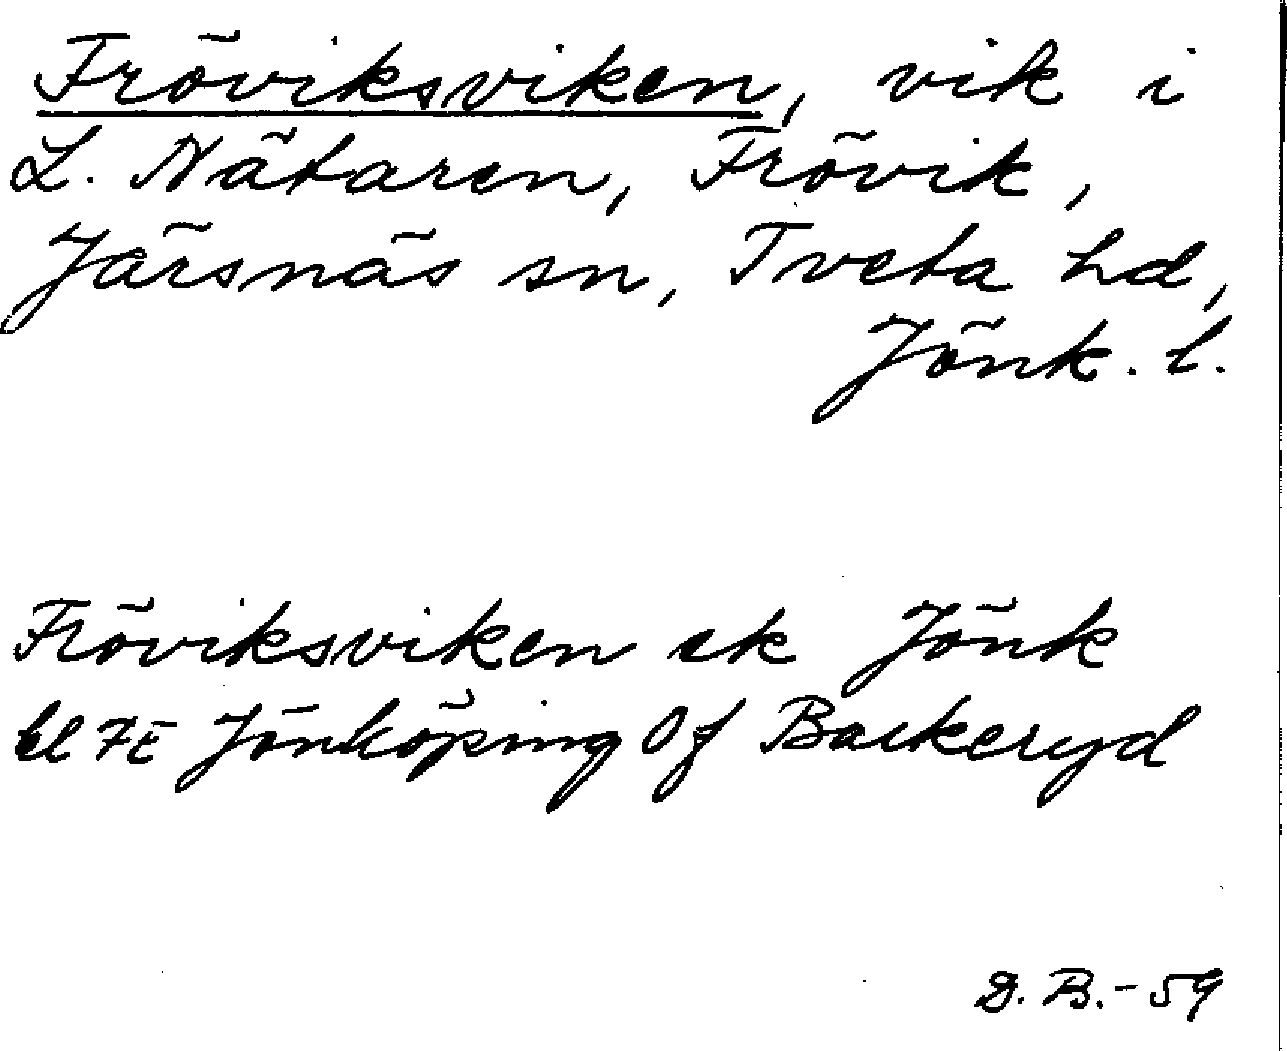 Fröviksviken, vik i
L. Nätaren, Frövik,
Järsnäs sn, Tveta hd,
Jönk. l.
Fröviksviken ek Jönk
bl 7E Jönköping Of Backeryd
D. B. - 59